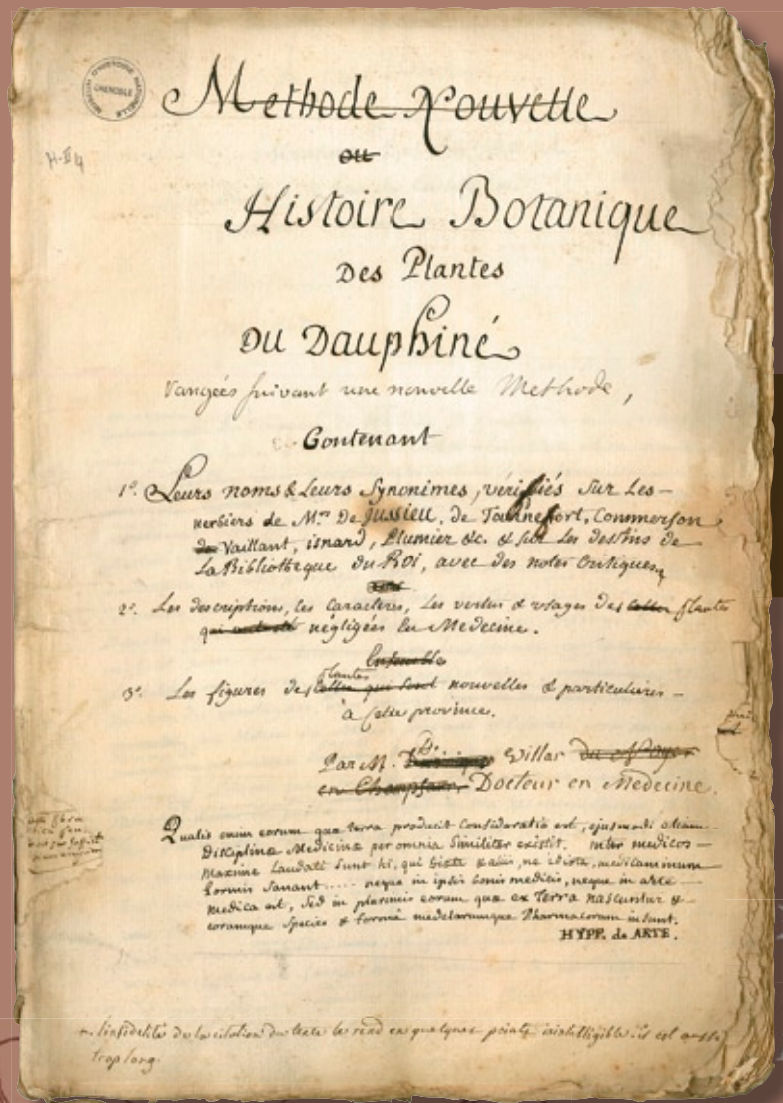 MUSEUM D'HISTOIRE NATURELLE
GRENOBLE
Methode Nouvelle
ou
Histoire Botanique
Des Plantes
Du Dauphiné
rangées suivant une nouvelle Methode,
Contenant
1º. Leurs noms & Leurs Synonimes, vérifiés sur Les
herbiers de M.rs De Jussieu, de Tournefort, Commerson
de Vaillant, isnard, Plumier &c. & sur Les dessins de
La Bibliotheque du Roi, avec des notes Critiques
2º. Les descriptions, les Caracteres, Les vertus & usages des plantes
qui négligées En Medecine.
Ensemble
plantes
3º. Les figures des celles qui sont nouvelles & particulieres
à Cette province.
Par M. D. Villar du Noyer
en Champsaur Docteur en Medecine.
Qualis enim eorum quæ terra producit Consideratio est, ejusmodi etiam
Disciplinæ Medicinæ per omnia Similiter existit. inter medicos
maxime Laudati Sunt hi, qui ne idiotæ, medicaminum
bonnis Sanant..... neque in ipsis bonis medicis, neque in arte
medica est, Sed in plurimis eorum quæ ex Terra nascuntur &
eorumque Species & formæ medelarumque Pharmacorum insunt.
HYPP. de ARTE.
L'infidelité de la citation du texte le rend en quelques points inintelligible. il est aussi
trop long.